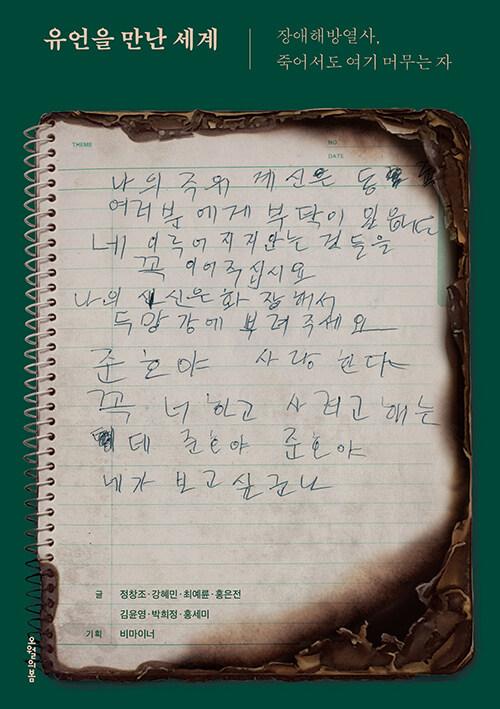 유언을 만난 세계
장애해방열사,
죽어서도 여기 머무는 자
THEME
NO.
DATE
나의 죽의 게 신은 동
여러분에게 부탁이 있읍니다
네 이루어지지안는 것들을
꼭 이어주십시요
나의 신은 화장해서
두망강에 뿌려주세요
준호야 사랑한다
꼭 너하고 사려고 해는
데 준호야 준호야
네가 보고싶구나
글 정창조·강혜민·최예륜·홍은전
김윤영·박희정·홍세미
기획 비마이너
오월의봄